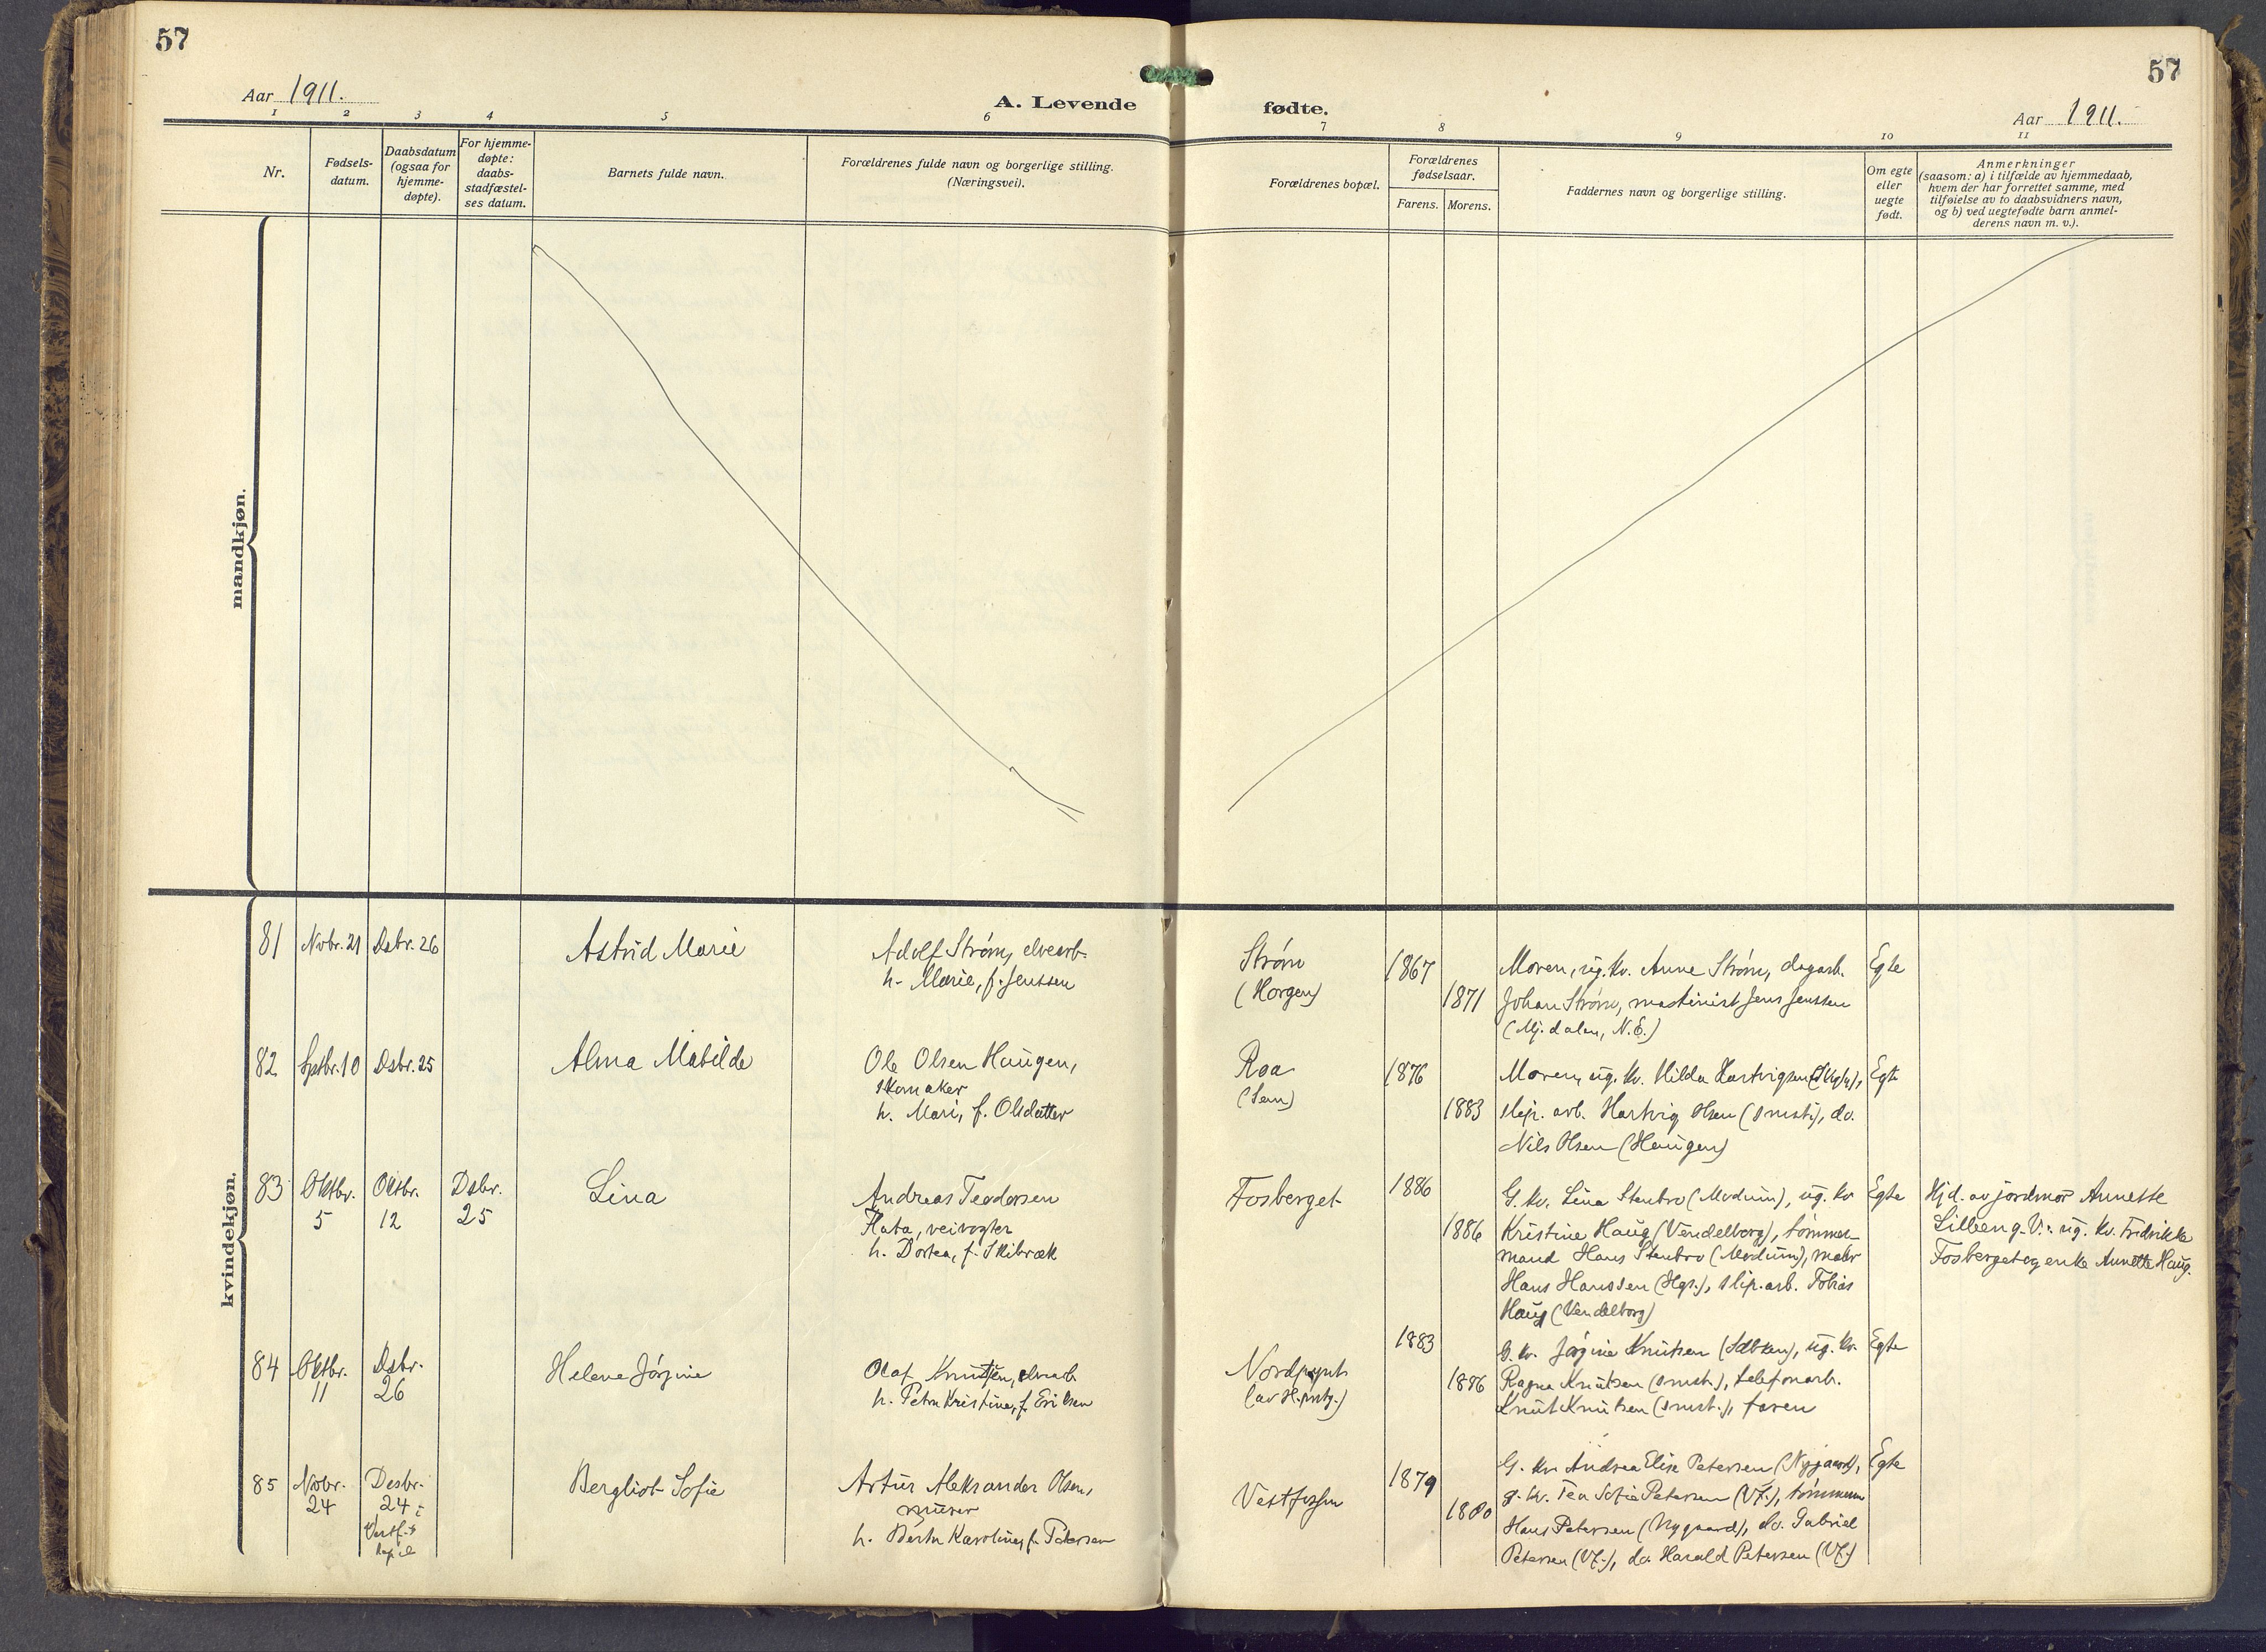 57
57
Aar 1911.
A. Levende fødte.
Aar 1911.
1 2 3 4 5 6 7 8 9 10 11
Nr.
Fødsels-
datum.
Daabsdatum
(ogsaa for
hjemme-
døpte).
For hjemme-
døpte:
daabs-
stadfæstel-
ses datum.
Barnets fulde navn.
Forældrenes fulde navn og borgerlige stilling.
(Næringsvei).
Forældrenes bopæl.
Forældrenes
fødselsaar.
Farens. Morens.
Faddernes navn og borgerlige stilling.
Om egte
eller
uegte
født.
Anmerkninger
(saasom: a) i tilfælde av hjemmedaab,
hvem der har forrettet samme, med
tilføielse av to daabsvidners navn,
og b) ved uegtefødte barn anmel-
derens navn m. v.).
mandkjøn.
kvindekjøn.
81 Novbr. 21 Dsbr. 26
Astrid Marie
Adolf Strøm, elvearb.
h. Marie, f. Jenssen
Strøm
(Horgen)
1867
1871
Moren, ug. kv. Anne Strøm, dagarb.
Johan Strøm, maskinist Jens Jenssen
(Mj.dalen, N.E.)
Egte
82 Septbr. 10 Dsbr. 25
Alma Matilde
Ole Olsen Haugen,
skomaker
h. Mari, f. Olsdatter
Roa
(Sem)
1876
1883
Moren, ug. kv. Hilda Hartvigsen
slip. arb. Hartvig Olsen (smst.), do.
Nils Olsen (Haugen)
Egte
83 Oktbr.
5
Oktbr.
12
Dsbr.
25
Lina
Andreas Teodorsen
Flata, veivogter
h. Dortea, f. Skibræk
Fosberget
1886
1886
G. kv. Lina Stenbro (Modum), ug. kv
Kristine Haug (Vendelborg), tømmer-
mand Hans Stenbro (Modum), maler
Hans Hanssen (Hgs.), slip. arb. Tobias
Haug (Vendelborg)
Egte
Hjd. av jordmor Annette
Lilleeng. V.: ug. kv. Fredrikke
Fosberget og enke Annette Haug.
84 Oktbr.
11
Dsbr.
26
Helene Jørgine
Olaf Knutsen, elvearb.
h. Petra Kristine, f. Eriksen
Nordpynt
(av H.prstg.)
1883
1886
G. kv. Jørgine Knutsen ug. kv.
Ragna Knutsen (smst.), telefonarb.
Knut Knutsen (smst.), faren
Egte
85 Novbr.
24
Desbr.
24 i
Vestf.s
kapel
Bergliot Sofie
Artur Aleksander Olsen,
murer
h. Berta Karoline, f. Petersen
Vestfossen
1879
1880
G. kv. Andrea Elise Petersen (Nygaard),
g. kv. Tea Sofie Petersen (Vf.), tømmerm.
Hans Petersen (Nygaard), do. Gabriel
Petersen (Vf.), do. Harald Petersen (Vf.)
Egte